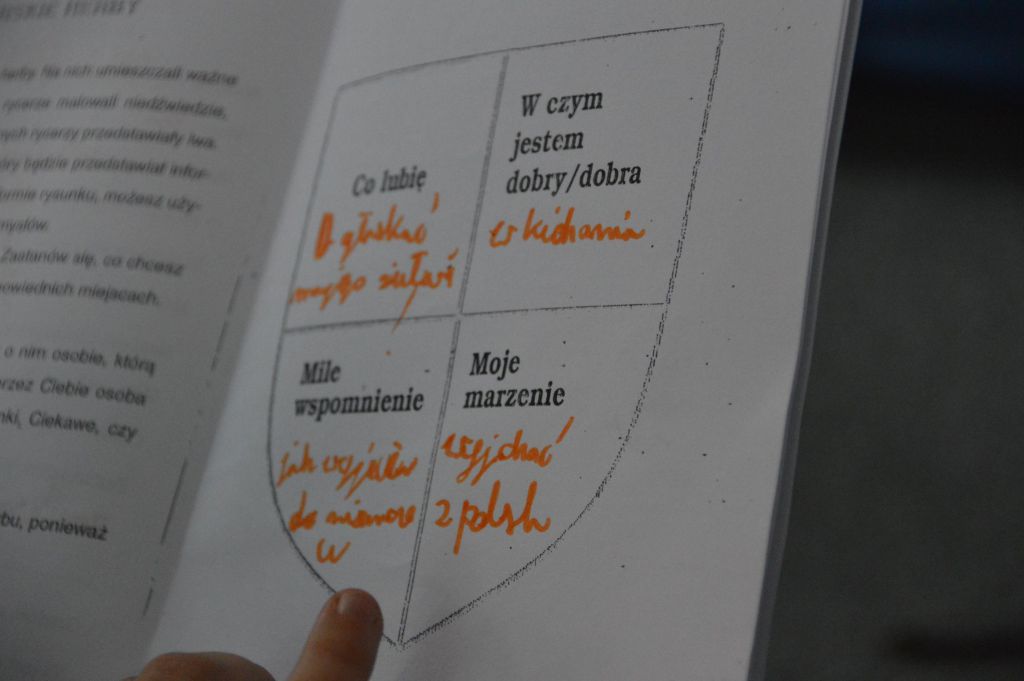 RSKIE HERBY
herby. Na nich umieszczali ważne
rycerze malowali niedźwiedzie,
nych rycerzy przedstawiały lwa.
óry będzie przedstawiał infor-
formie rysunku, możesz uży-
mysłów.
Zastanów się, co chcesz
powiednich miejscach.
o nim osobie, którą
przez Ciebie osoba
nki, Ciekawe, czy
bu, ponieważ
Co lubię
głaskać
mojego
W czym
jestem
dobry/dobra
w kichania
Mile
wspomnienie
jak wyjechałem
do niemców
Moje
marzenie
wyjchać
z polsk